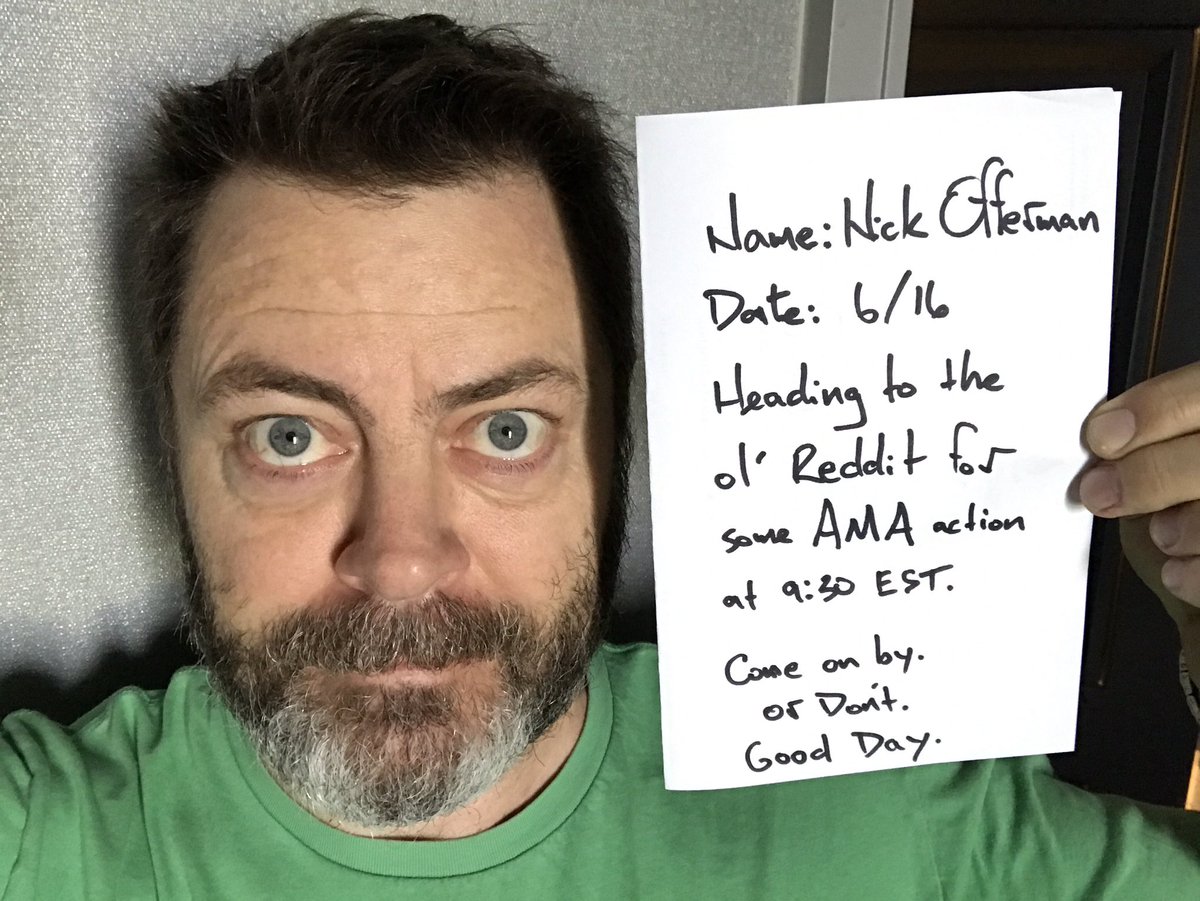 Name: Nick Offerman
Date: 6/16
Heading to the
ol' Reddit for
some AMA action
at 9:30 EST.
Come on by.
or Don't.
Good Day.